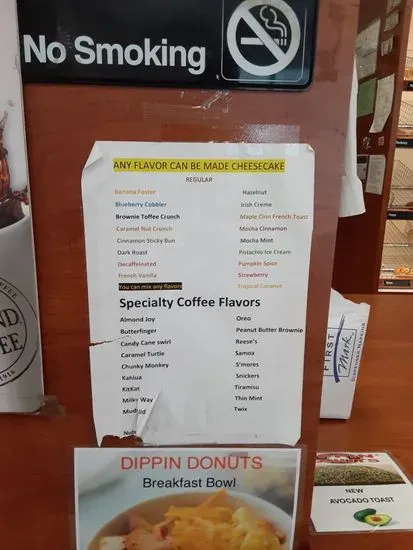 No Smoking
ANY FLAVOR CAN BE MADE CHEESECAKE
REGULAR
Banana Foster
Blueberry Cobbler
Brownie Toffee Crunch
Caramel Nut Crunch
Cinnamon Sticky Bun
Dark Roast
Decaffeinated
French Vanilla
You can mix any flavors
Hazelnut
Irish Creme
Maple Cinn French Toast
Mocha Cinnamon
Mocha Mint
Pistachio Ice Cream
Pumpkin Spice
Strawberry
Tropical Coconut
Specialty Coffee Flavors
Almond Joy
Butterfinger
Candy Cane swirl
Caramel Turtle
Chunky Monkey
Kahlua
KitKat
Milky Way
Oreo
Peanut Butter Brownie
Reese's
Samoa
S'mores
Snickers
Tiramisu
Thin Mint
Twix
DIPPIN DONUTS
Breakfast Bowl
FIRST
Mark
NEW
AVOCADO TOAST